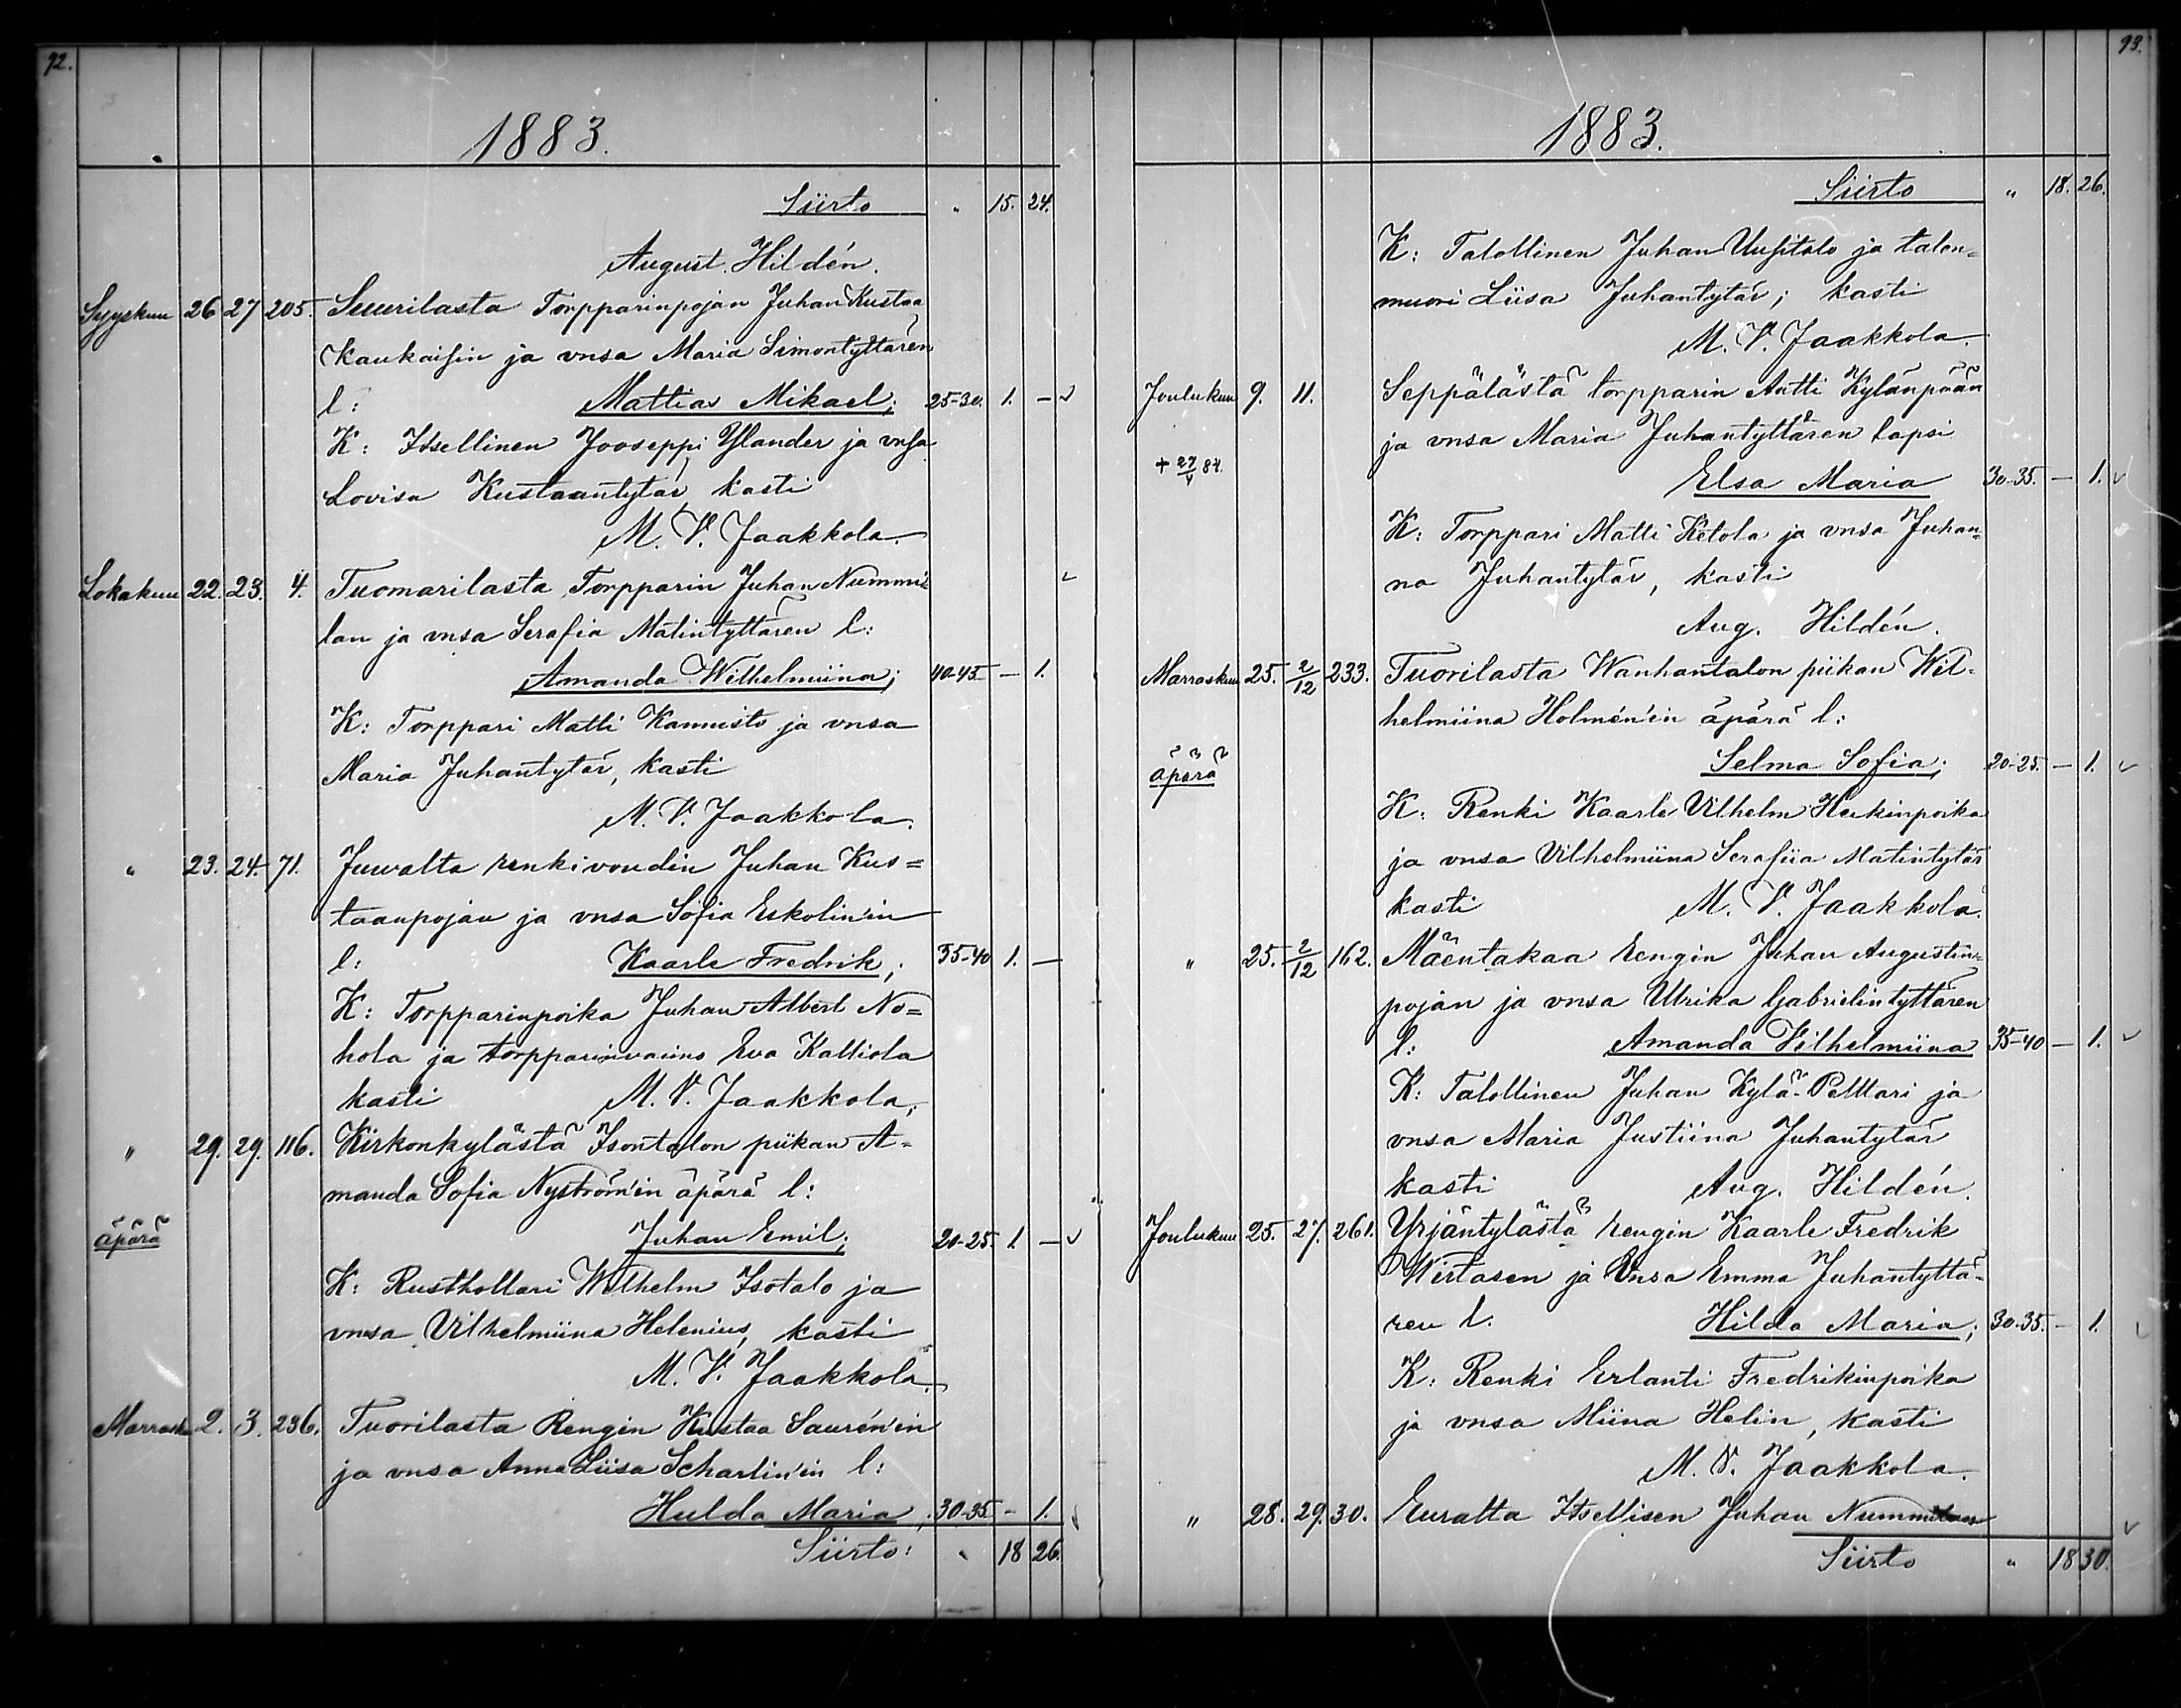 92.
1883.
Siirto " 15. 24.
August. Hildén.
Syyskuu 26 27 205. Suurilasta Torpparinpojan Juhan Kustaa
Kaukaisin ja vnsa Maria Simontyttären
l: Mattias Mikael; 25-30. 1. —
K: Itsellinen Jooseppi Ylander ja vnsa
Lovisa Kustaantytär, kasti
M. V. Jaakkola.
Lokakuu 22. 23. 4. Tuomarilasta Torpparin Juhan Nummi-
lan ja vnsa Serafia Matintyttären l:
Amanda Wilhelmiina; 40-45 — 1.
K: Torppari Matti Kannisto ja vnsa
Maria Juhantytär, kasti
M. V. Jaakkola.
" 23. 24. 71. Juvalta renkivoudin Juhan Kus=
taanpojan ja vnsa Sofia Eskolin'in
l: Kaarle Fredrik; 35-40 1. —
K: Torpparinpoika Juhan Albert No=
hola ja torpparinvaimo Eva Kalliola
kasti M. V. Jaakkola.
" 29. 29. 116. Kirkonkylästä Isontalon piikan A=
manda Sofia Nyström'in äpärä l:
äpärä Juhan Emil; 20-25. 1. —
K: Rusthollari Wilhelm Isotalo ja
vnsa Vilhelmiina Helenius, kasti
M. V. Jaakkola.
Marrask. 2. 3. 236. Tuorilasta Rengin Kustaa Saurén'in
ja vnsa Anna Liisa Scharlin'in l:
Hulda Maria; 30-35 - 1.
Siirto: " 18 26.
93.
1883.
Siirto " 18. 26.
K: Talollinen Juhan Uusitalo ja talon=
muori Liisa Juhantytär; kasti
M. V. Jaakkola.
Joulukuu 9. 11. Seppälästä torpparin Antti Kylänpään
ja vnsa Maria Juhantyttären lapsi
Elsa Maria 30-35. — 1.
K: Torppari Matti Ketola ja vnsa Juhan=
na Juhantytär, kasti
Aug. Hildén.
Marraskuu 25. 2/12 233. Tuorilasta Wanhantalon piikan Wil=
helmiina Holmén'in äpärä l:
äpärä Selma Sofia; 20-25. — 1.
K: Renki Kaarle Vilhelm Heikinpoika
ja vnsa Vilhelmiina Serafiia Matintytär
kasti M. V. Jaakkola.
" 25. 2/12 162. Mäentakaa Rengin Juhan Augustin=
pojan ja vnsa Ulrika Gabrielintyttären
l: Amanda Vilhelmiina 35-40 — 1.
K: Talollinen Juhan Kylä-Pelttari ja
vnsa Maria Justiina Juhantytär
kasti Aug. Hildén.
Joulukuu 25. 27. 261. Yrjäntylästä rengin Kaarle Fredrik
Wirtasen ja Vnsa Emma Juhantyttä-
ren l. Hilda Maria; 30-35. — 1.
K: Renki Erlanti Fredrikinpoika
ja vnsa Miina Helin, kasti
M. V. Jaakkola.
" 28. 29. 30. Euralta Itsellisen Juhan Nummilan
Siirto " 18 30.